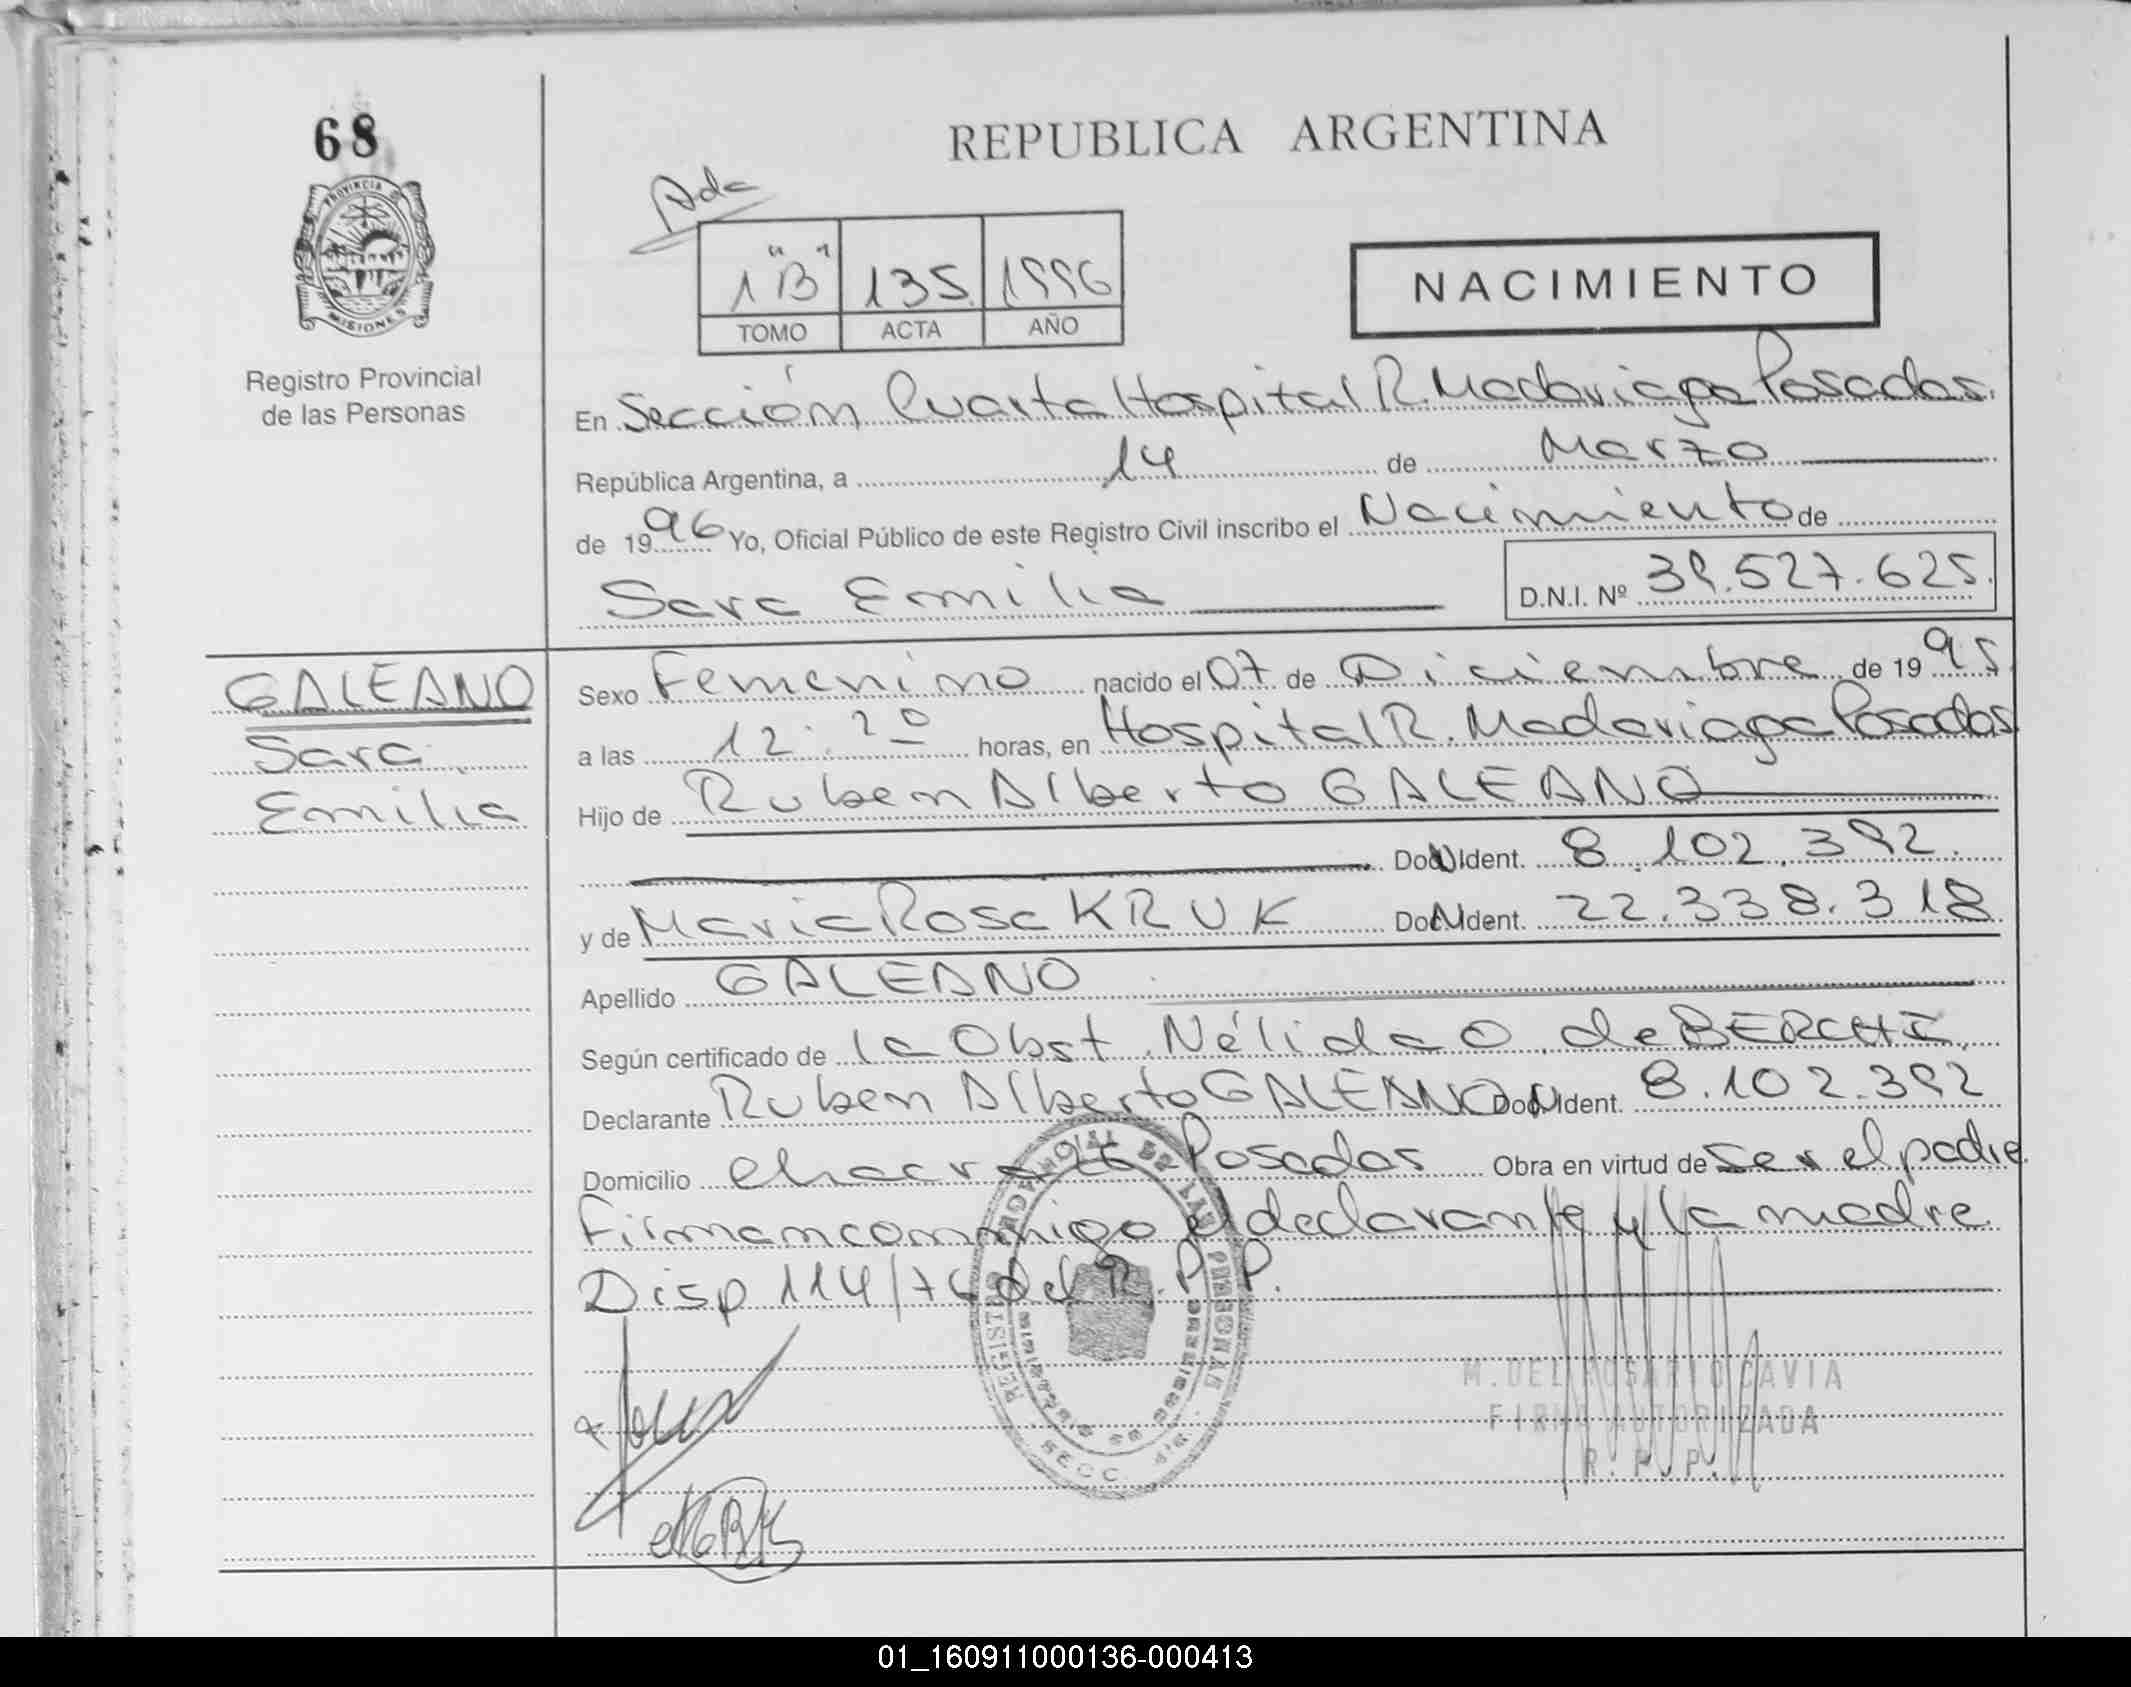 68
REPUBLICA ARGENTINA
PROVINCIA DE
MISIONES
Registro Provincial
de las Personas
Ada
1 "B" 135 1996
TOMO ACTA AÑO
NACIMIENTO
En Sección Cuarta Hospital R. Madariaga Posadas.
República Argentina, a 14 de Marzo
de 1996 Yo, Oficial Público de este Registro Civil inscribo el Nacimiento de
Sara Emilia D.N.I. Nº 39.527.625.
GALEANO
Sara
Emilia
Sexo Femenino nacido el 07 de Diciembre de 1995
a las 12:20 horas, en Hospital R. Madariaga Posadas
Hijo de Ruben Alberto GALEANO
Ident. 8.102.392.
y de Maria Rosa KRUK Ident. 22.338.318
Apellido GALEANO
Según certificado de la Obst. Nélida O. de BERCHI.
Declarante Ruben Alberto GALEANO Ident. 8.102.392
Domicilio chacra 26 Posadas Obra en virtud de ser el padre
Firman conmigo el declarante y la madre
Disp 114/76 del R.P.P.
REGISTRO PROVINCIAL DE LAS PERSONAS
SECC.
M. DEL ROSARIO CAVIA
FIRMA AUTORIZADA
R. P. P.
01_160911000136-000413